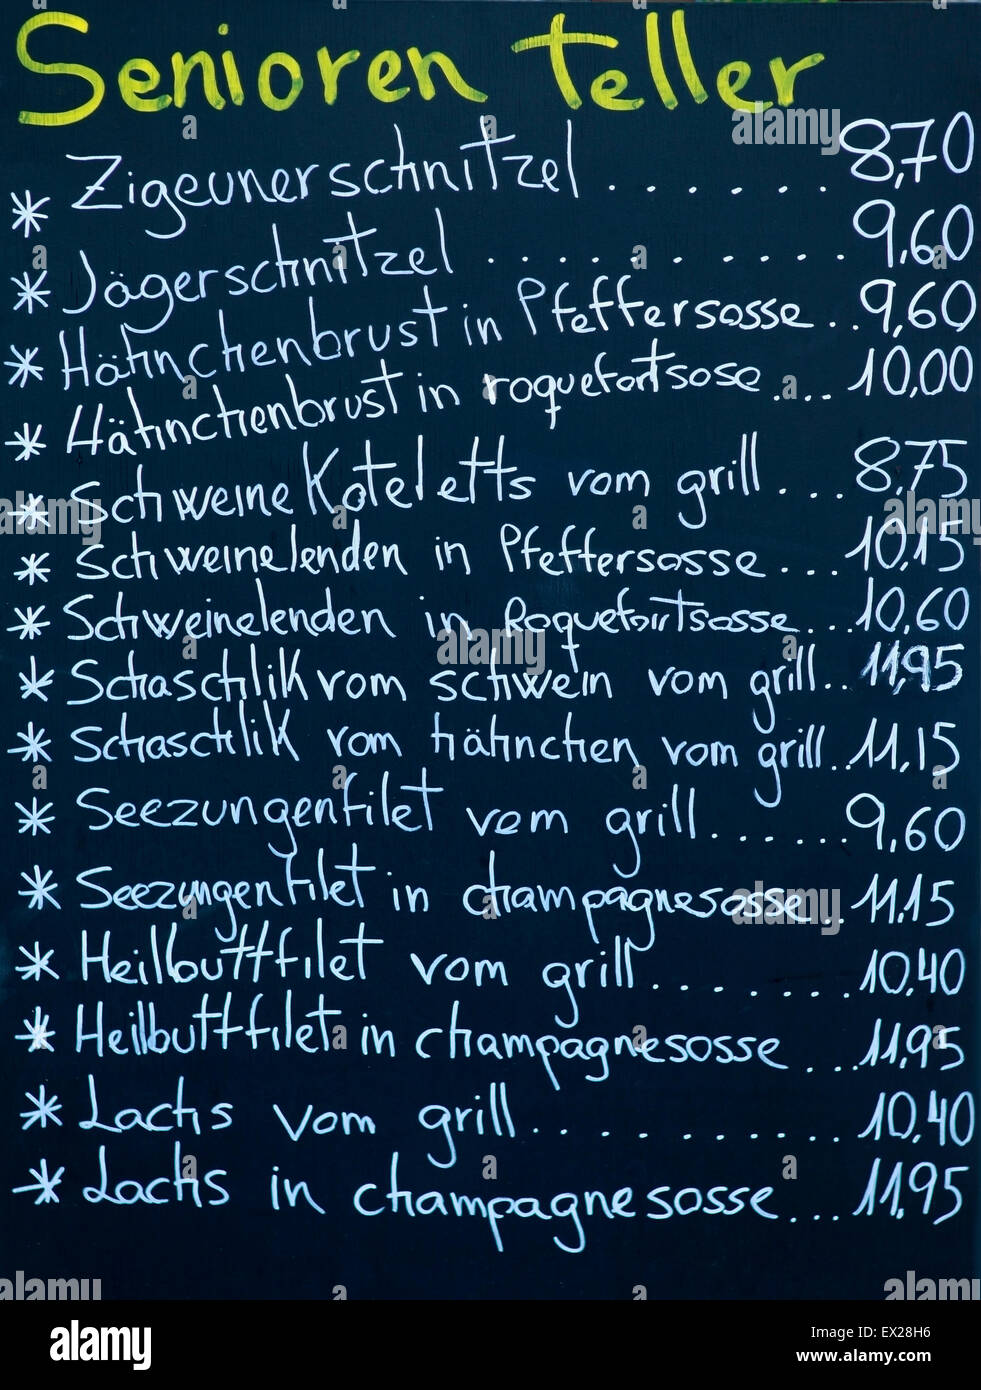 Senioren teller
* Zigeunerschnitzel....... 8,70
* Jägerschnitzel ............ 9,60
* Hähnchenbrust in Pfeffersosse.. 9,60
* Hähnchenbrust in roquefortsose .... 10,00
* SchweineKoteletts vom grill... 8,75
* Schweinelenden in Pfeffersosse... 10,15
* Schweinelenden in Roquefortsosse... 10,60
* Schaschlik vom schwein vom grill.. 11,95
* Schaschlik vom hähnchen vom grill.. 11,15
* Seezungenfilet vom grill...... 9,60
* Seezungenfilet in champagnesosse.. 11,15
* Heilbuttfilet vom grill........ 10,40
* Heilbuttfilet in champagnesosse ... 11,95
* Lachs vom grill........... 10,40
* Lachs in champagnesosse... 11,95
alamy
Image ID: EX28H6
www.alamy.com